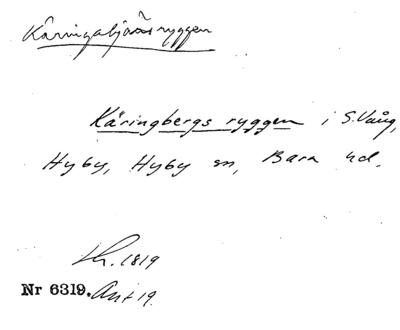 Käringabjärsryggen
Käringbergs ryggen i S. Vång,
Hyby, Hyby sn, Bara hd.
1819
Nr 6319. Ant 19